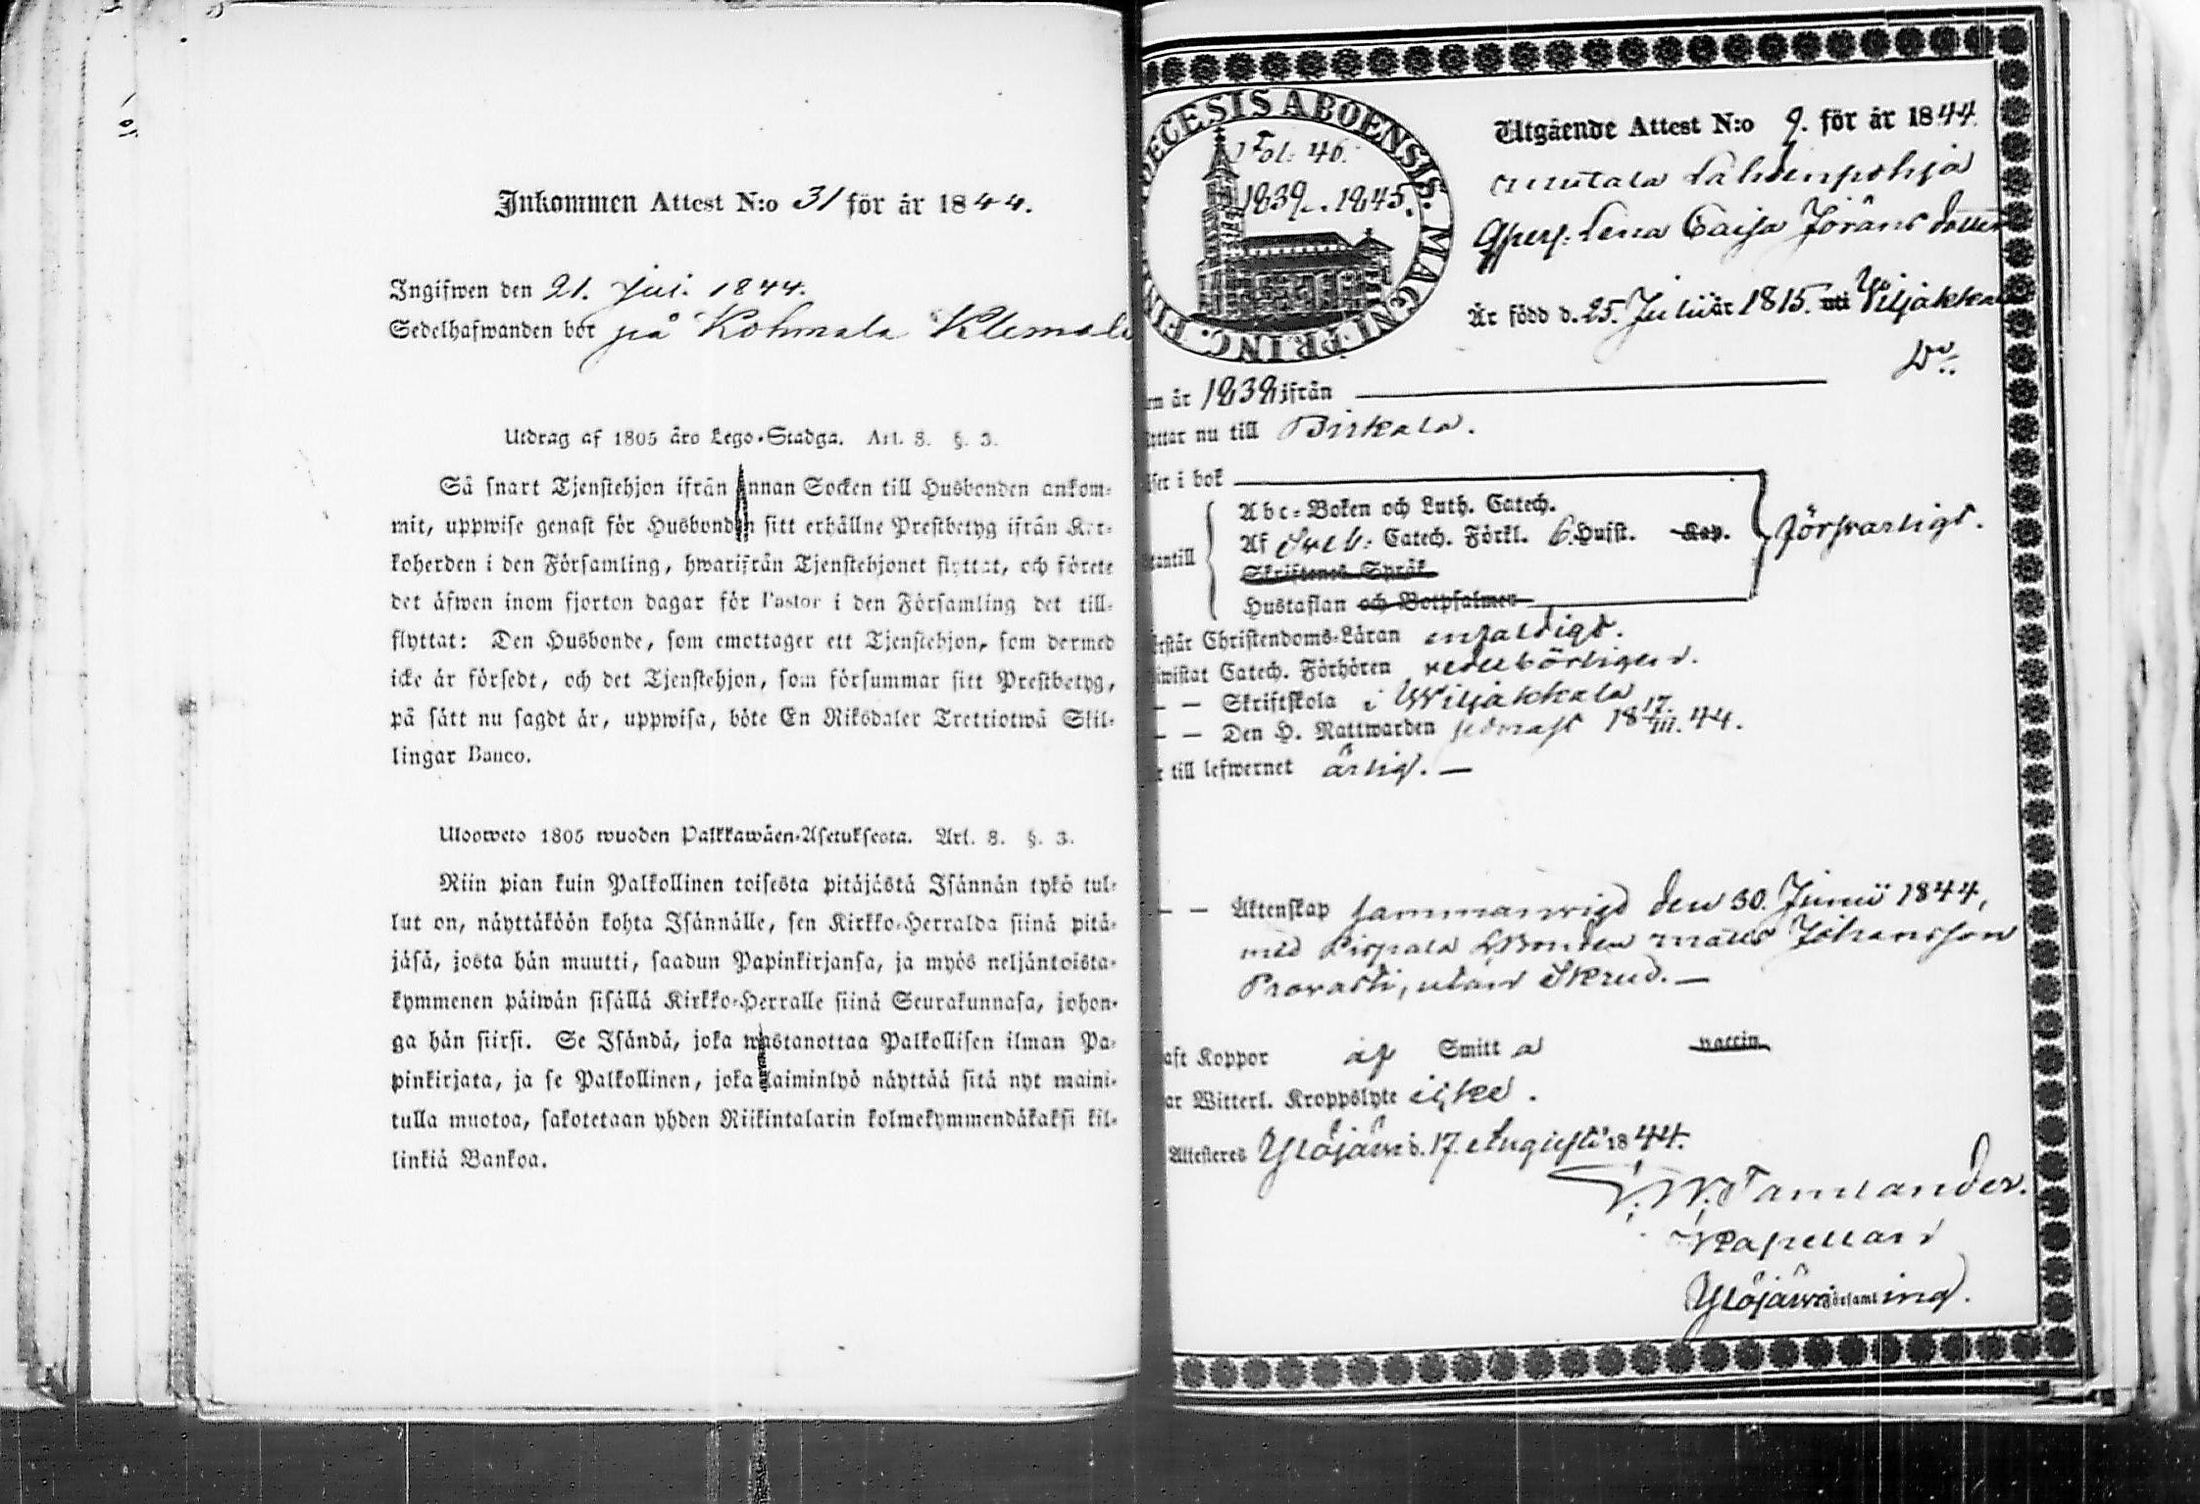 Inkommen Attest N:o 31 för år 1844.
Ingifwen den 21. Juli. 1844.
Sedelhafwanden bor på Kohmala Klemola
Utdrag af 1805 års Lego-Stadga. Art. 8. §. 3.
Så snart Tjenstehjon ifrån annan Socken till Husbonden ankom-
mit, uppwise genast för Husbonden sitt erhållne Prestbetyg ifrån Kyr-
koherden i den Församling, hwarifrån Tjenstehjonet flyttat, och förete
det äfwen inom fjorton dagar för Pastor i den Församling det till-
flyttat: Den Husbonde, som emottager ett Tjenstehjon, som dermed
icke är försedt, och det Tjenstehjon, som försummar sitt Prestbetyg,
på sätt nu sagdt är, uppwisa, böte En Riksdaler Trettiotwå Skil-
lingar Banco.
Ulosweto 1805 wuoden Palkkawäen-Asetuksesta. Art. 8. §. 3.
Niin pian kuin Palkollinen toisesta pitäjästä Isännän tykö tul-
lut on, näyttäköön kohta Isännälle, sen Kirkko-Herralda siinä pitä-
jäsä, josta hän muutti, saadun Papinkirjansa, ja myös neljäntoista-
kymmenen päiwän sisällä Kirkko-Herralle siinä Seurakunnasa, johon-
ga hän siirsi. Se Isändä, joka wastanottaa Palkollisen ilman Pa-
pinkirjata, ja se Palkollinen, joka laiminlyö näyttää sitä nyt maini-
tulla muotoa, sakotetaan yhden Riikintalarin kolmekymmendäkaksi kil-
linkiä Bankoa.
DIECESIS ABOENSIS. MAGNI PRINC. FIN
Fol. 46.
1839–1845.
Utgående Attest N:o 9. för år 1844.
Mutala Lahdenpohja
Lena Caisa Jöransdotter
Är född d. 25. Julii år 1815. uti Wiljakkala
en år 1838 ifrån
yttar nu till Birkala.
ser i bok
Abc-Boken och Luth. Catech.
Af Sveb. Catech. Förkl. 6. Hufst. Kap.
försvarligt.
tantill
Skriftenes Språk
Hustaflan och Botpsalmer
rstår Christendoms-Läran enfaldigt.
iwistat Catech. Förhören vederbörligen.
– – Skriftskola i Wiljakkala
– – Den H. Nattwarden sednast 18 17/III. 44.
r till lefwernet ärlig. —
– – Äktenskap sammanvigd den 30. Junii 1844,
med Pispala Bonden Matts Johansson
Provasti, utan Skrud. —
aft Koppor af Smitta vaccin
ar Witterl. Kroppslyte icke.
Attesteres Ylöjärvi d. 17. Augusti 1844.
Tamlander.
Kapellan i
Ylöjärvi Församling.